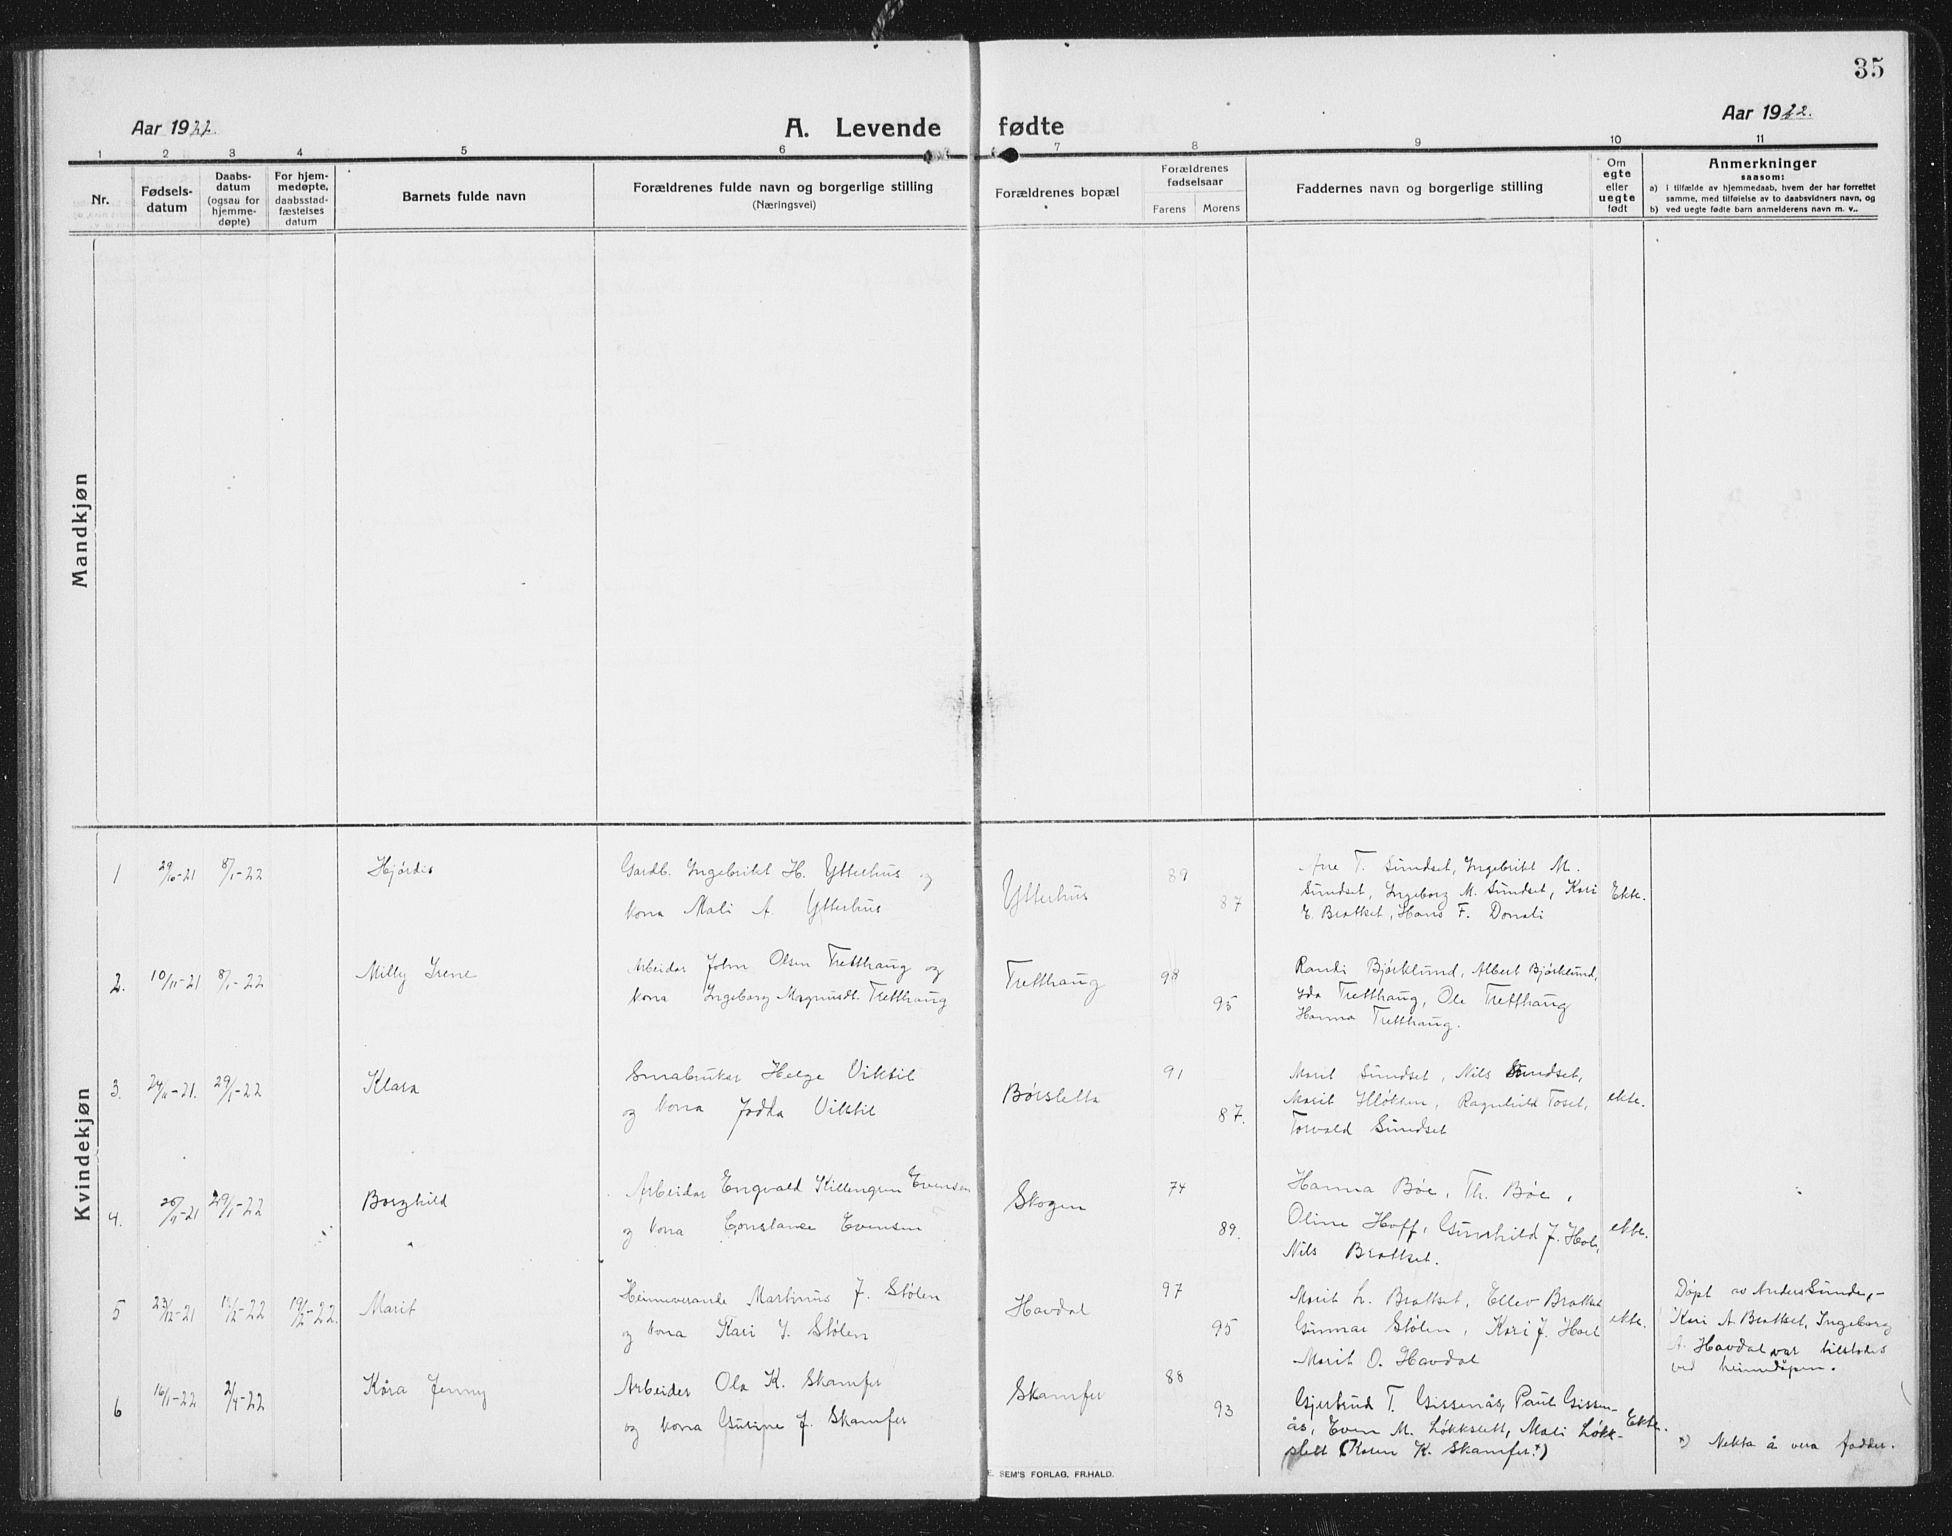 35
Aar 1922.
A. Levende fødte
Aar 1922.
1 2 3 4 5 6 7 8 9 10 11
Nr.
Fødselsdatum
Daabsdatum (ogsaa for hjemmedøpte)
For hjemmedøpte, daabsstadfæstelses datum
Barnets fulde navn
Forældrenes fulde navn og borgerlige stilling
(Næringsvei)
Forældrenes bopæl
Forældrenes fødselsaar
Farens Morens
Faddernes navn og borgerlige stilling
Om egte eller uegte født
Anmerkninger
saasom:
a) i tilfælde av hjemmedaab, hvem der har forrettet
samme, med tilføielse av to daabsvidners navn, og
b) ved uegte fødte barn anmelderens navn m. v..
Mandkjøn
Kvindekjøn
1 29/10-21 8/1-22 Hjørdis
Gardb. Ingebrikt H. Ytterhus og
kona Mali A. Ytterhus
Ytterhus 89 87
Ane T. Sundset, Ingebrikt M.
Sundset, Ingeborg M. Sundset, Kari
E. Brattset, Hans F. Donali
Ekte.
2. 10/11-21 8/1-22 Milly Irene
Arbeidar John Olsen Tretthaug og
kona Ingeborg Magnusdt. Tretthaug
Tretthaug 98 95
Randi Bjørklund, Albert Bjørklund,
Ida Tretthaug, Ole Tretthaug
Hanna Tretthaug.
3. 24/11-21. 29/1-22 Klara
Smabrukar Helge Viktil
og kona Viktil
Børsletta 91 87.
Marit Sundset, Nils Sundset,
Marit Ragnhild Toset,
Torvald Sundset
ekte.
4. 26/11-21 29/1-22 Borghild
Arbeidar Engvald Killengren Evensen
og kona Constance Evensen
Skogen 74 89.
Hanna Bøe, Th. Bøe,
Oline Hoff, Gunhild J. Hol,
Nils Brattset.
ekte.
5 23/12-21 12/2-22 19/2-22. Marit
Heimeverande Martinus J. Stølen
og kona Kari J. Stølen
Havdal 97 95
Marit L. Brattset, Ellev Brattset
Gunnar Stølen, Kari J. Hoel
Marit O. Havdal
ekte.
Døpt av Anders Sunde,-
Kari A Brattset, Ingeborg
A. Havdal var tilstades
ved heimdåpen.
6 16/1-22 2/4-22 Kåra Jenny
Arbeider Ola K. Skamfer
og kona Gurine J. Skamfer
Skamfer 88 93
Gjertrud T. Gissenås, Paul Gissen-
ås, Even M. Løkkslett, Mali Løkk-
slett (Karen K. Skamfer.*)
Ekte.
*) Nekta å vera fadder.
E. SEM'S FORLAG, FR.HALD.